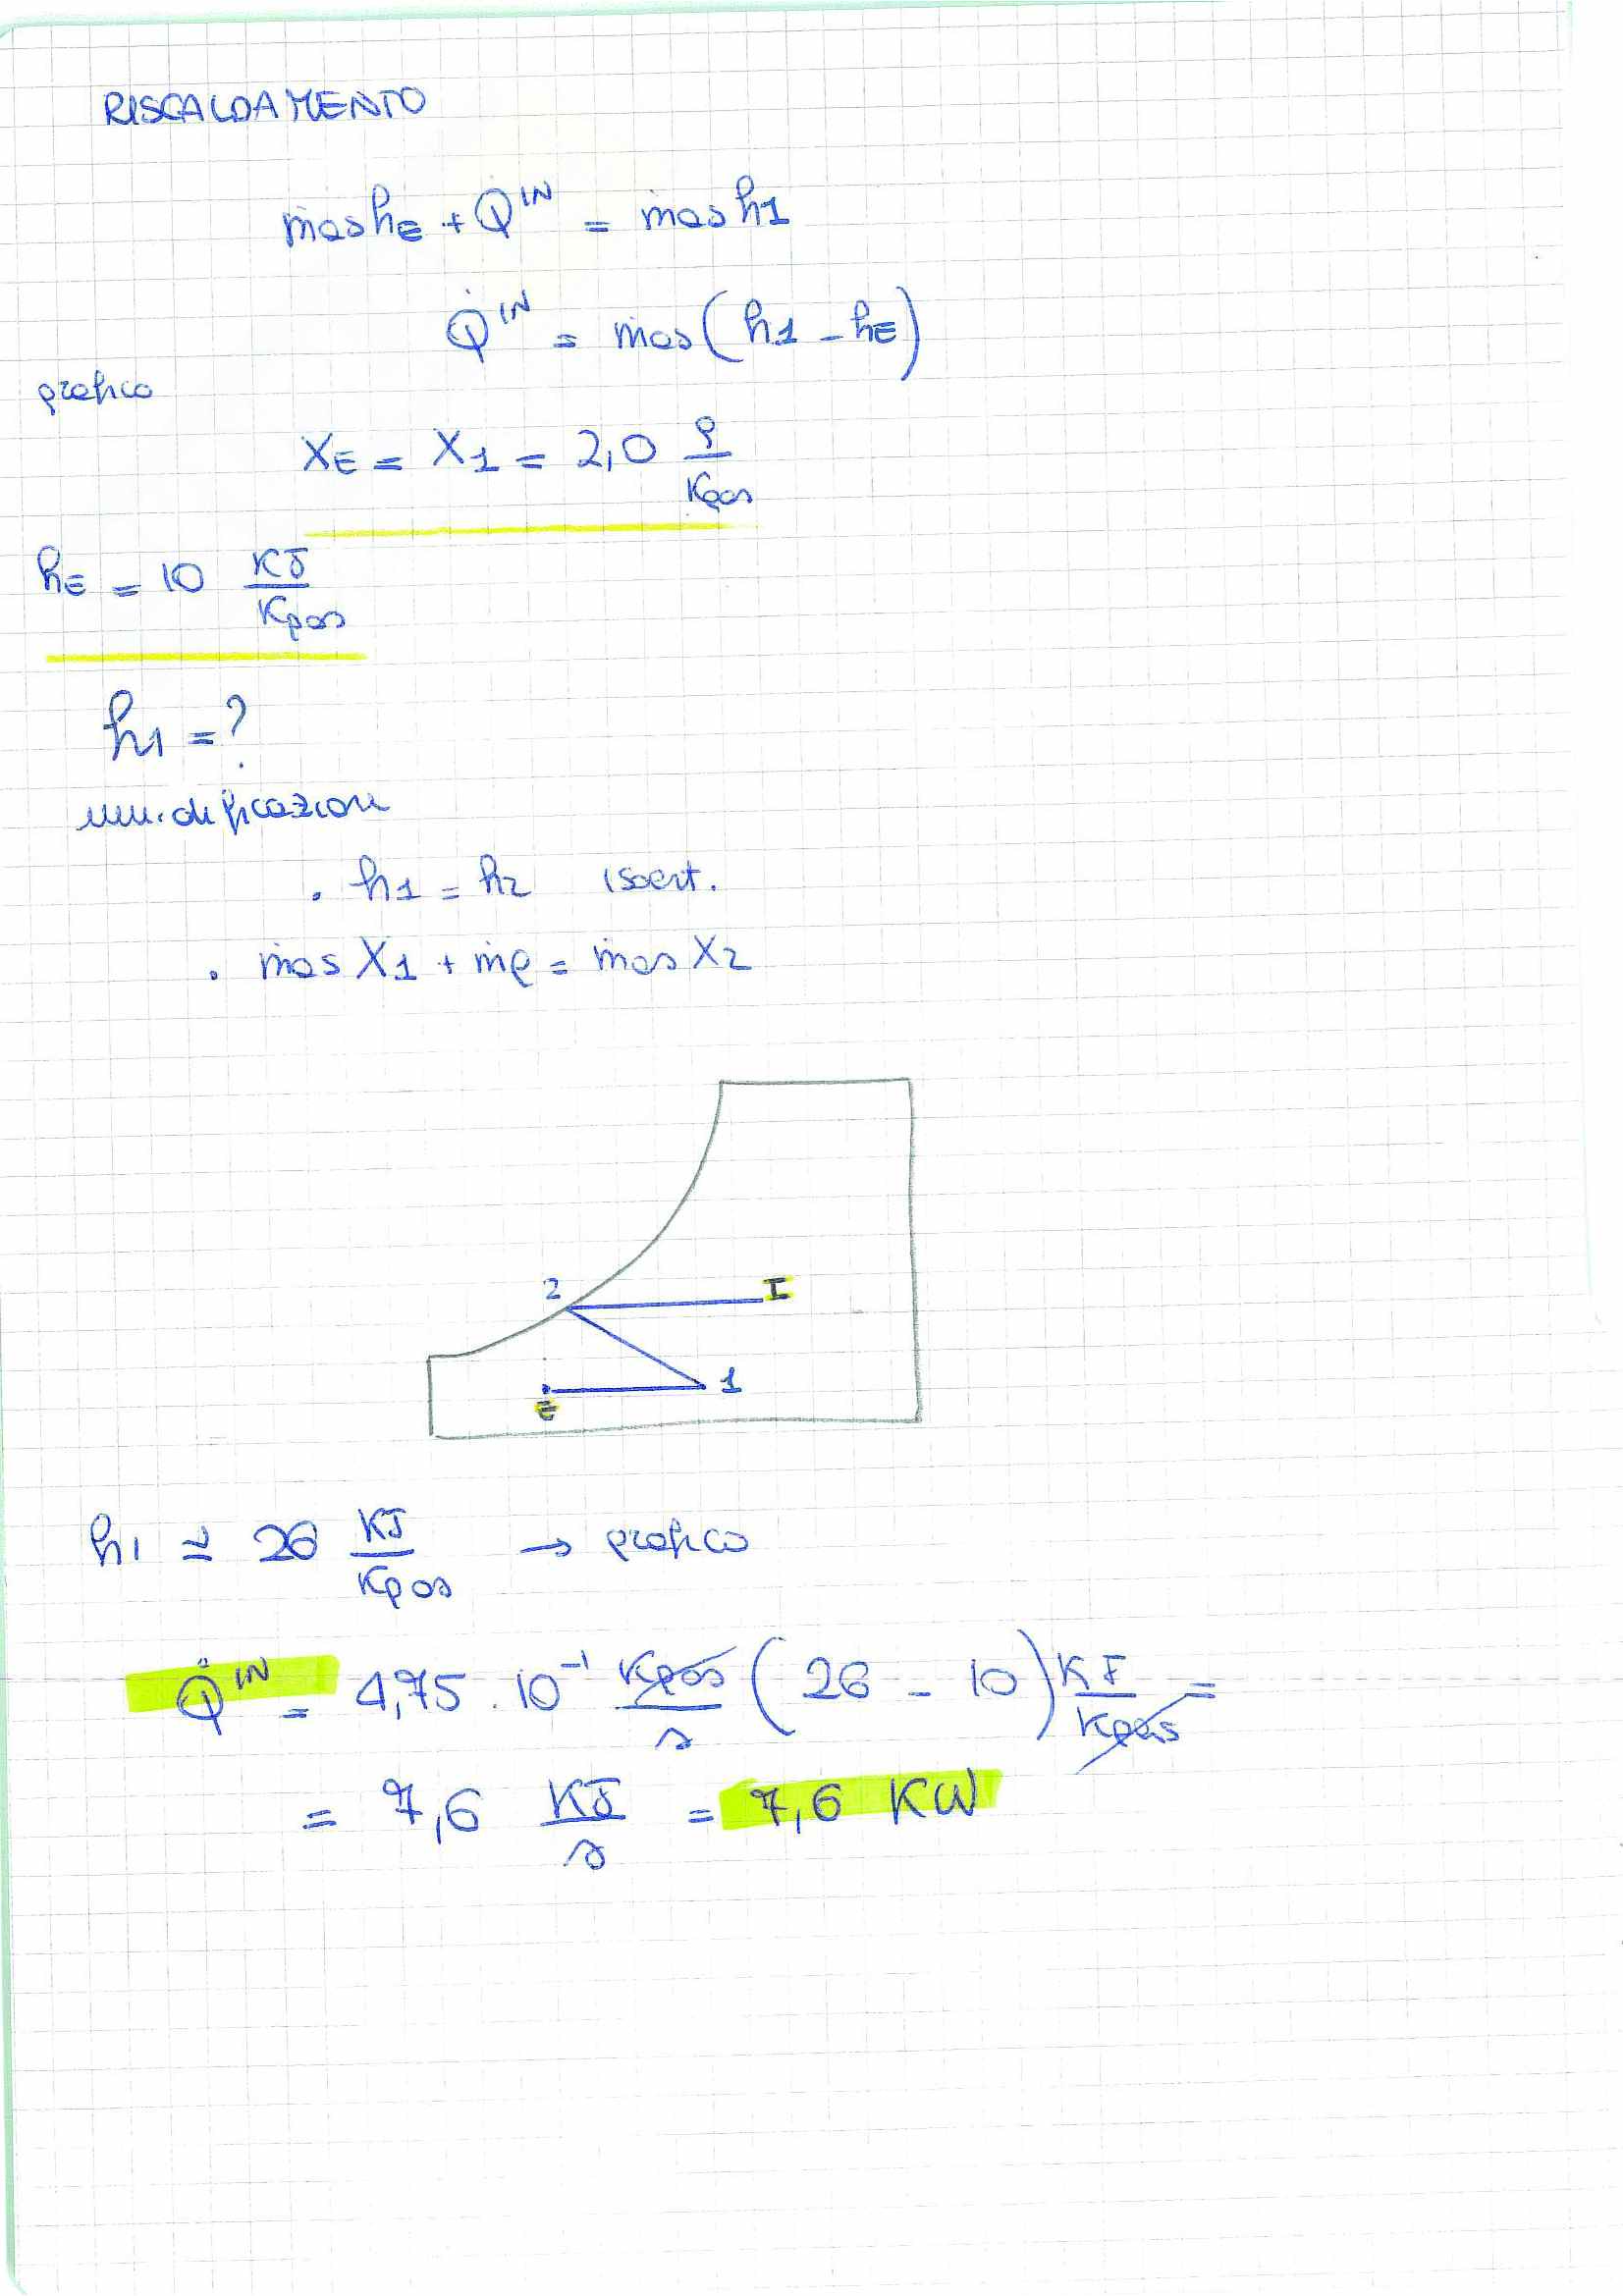 RISCALDAMENTO
ṁas hE + Q̇^IN = ṁas h1
Q̇^IN = ṁas (h1 - hE)
grafico
XE = X1 = 2,0 g/Kgas
hE = 10 KJ/Kgas
h1 = ?
umidificazione
• h1 = h2 isoent.
• ṁas X1 + ṁe = ṁas X2
2 I
E 1
h1 ≅ 26 KJ/Kgas → grafico
Q̇^IN = 4,75 · 10^-1 Kgas/s (26 - 10) KJ/Kgas =
= 7,6 KJ/s = 7,6 KW